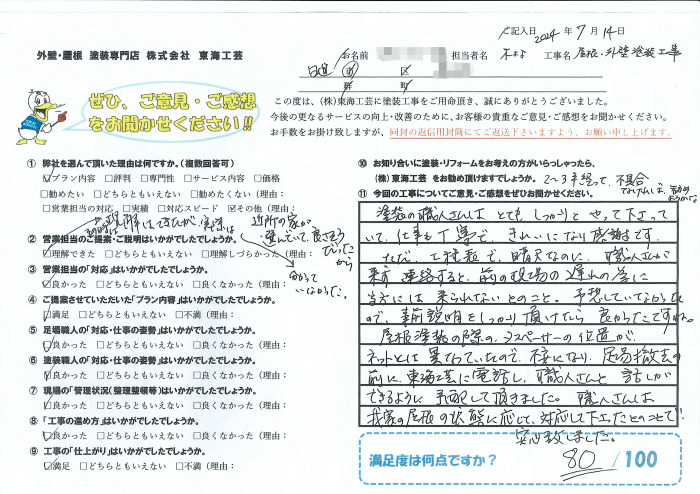 ご記入日 2024年7月14日
外壁・屋根 塗装専門店 株式会社 東海工芸
お名前
担当者名
工事名 屋根・外壁塗装工事
日進 市 区
郡 町
ぜひ、ご意見・ご感想
をお聞かせください!!
この度は、(株)東海工芸に塗装工事をご用命頂き、誠にありがとうございました。
今後の更なるサービスの向上・改善のために、お客様の貴重なご意見・ご感想をお聞かせください。
お手数をお掛け致しますが、同封の返信用封筒にてご返送下さいますよう、お願い申し上げます。
① 弊社を選んで頂いた理由は何ですか。(複数回答可)
プラン内容 □評判 □専門性 □サービス内容 □価格
□営業担当の対応 □実績 □対応スピード その他(理由:
近所の家が
選んでいて、良さそう
だったから
② 営業担当のご提案・ご説明はいかがでしたでしょうか。
理解できた □どちらともいえない □理解しづらかった(理由:
分かって
いなかった。
③ 営業担当の「対応」はいかがでしたでしょうか。
良かった □どちらともいえない □良くなかった(理由:
④ ご提案させていただいた「プラン内容」はいかがでしたでしょうか。
満足 □どちらともいえない □不満(理由:
⑤ 足場職人の「対応・仕事の姿勢」はいかがでしたでしょうか。
良かった □どちらともいえない □良くなかった(理由:
⑥ 塗装職人の「対応・仕事の姿勢」はいかがでしたでしょうか。
良かった □どちらともいえない □良くなかった(理由:
⑦ 現場の「管理状況(整理整頓等)はいかがでしたでしょうか。
良かった □どちらともいえない □良くなかった(理由:
⑧ 「工事の進め方」はいかがでしたでしょうか。
良かった □どちらともいえない □良くなかった(理由:
⑨ 工事の「仕上がり」はいかがでしたでしょうか。
満足 □どちらともいえない □不満(理由:
⑩ お知り合いに塗装・リフォームをお考えの方がいらっしゃったら、
(株)東海工芸 をお勧め頂けますでしょうか。 2〜3年経って、不具合
□勧めたい □どちらともいえない □勧めたくない(理由:
⑪ 今回の工事についてご意見・ご感想をぜひお聞かせください。
塗装の職人さんは とても しっかりと やって下さって
いて、仕事も丁寧で、きれいになり感謝です。
ただ、工程表で、晴天なのに、職人さんが
来ず 連絡すると、前の現場の遅れの為に
当方には 来られないとのこと。予想していなかった
ので、事前説明を しっかり頂けたら 良かったですね。
屋根塗装の際の、スペーサーの位置が、
ネットとは 異なっていたので、不安になり、足場撤去の
前に、東海工芸に電話し、職人さんと 話しが
できるように 手配して頂きました。職人さんは
我家の屋根の状態に応じて、対応して下さったとのことで!
安心致しました。
満足度は何点ですか? 80/100